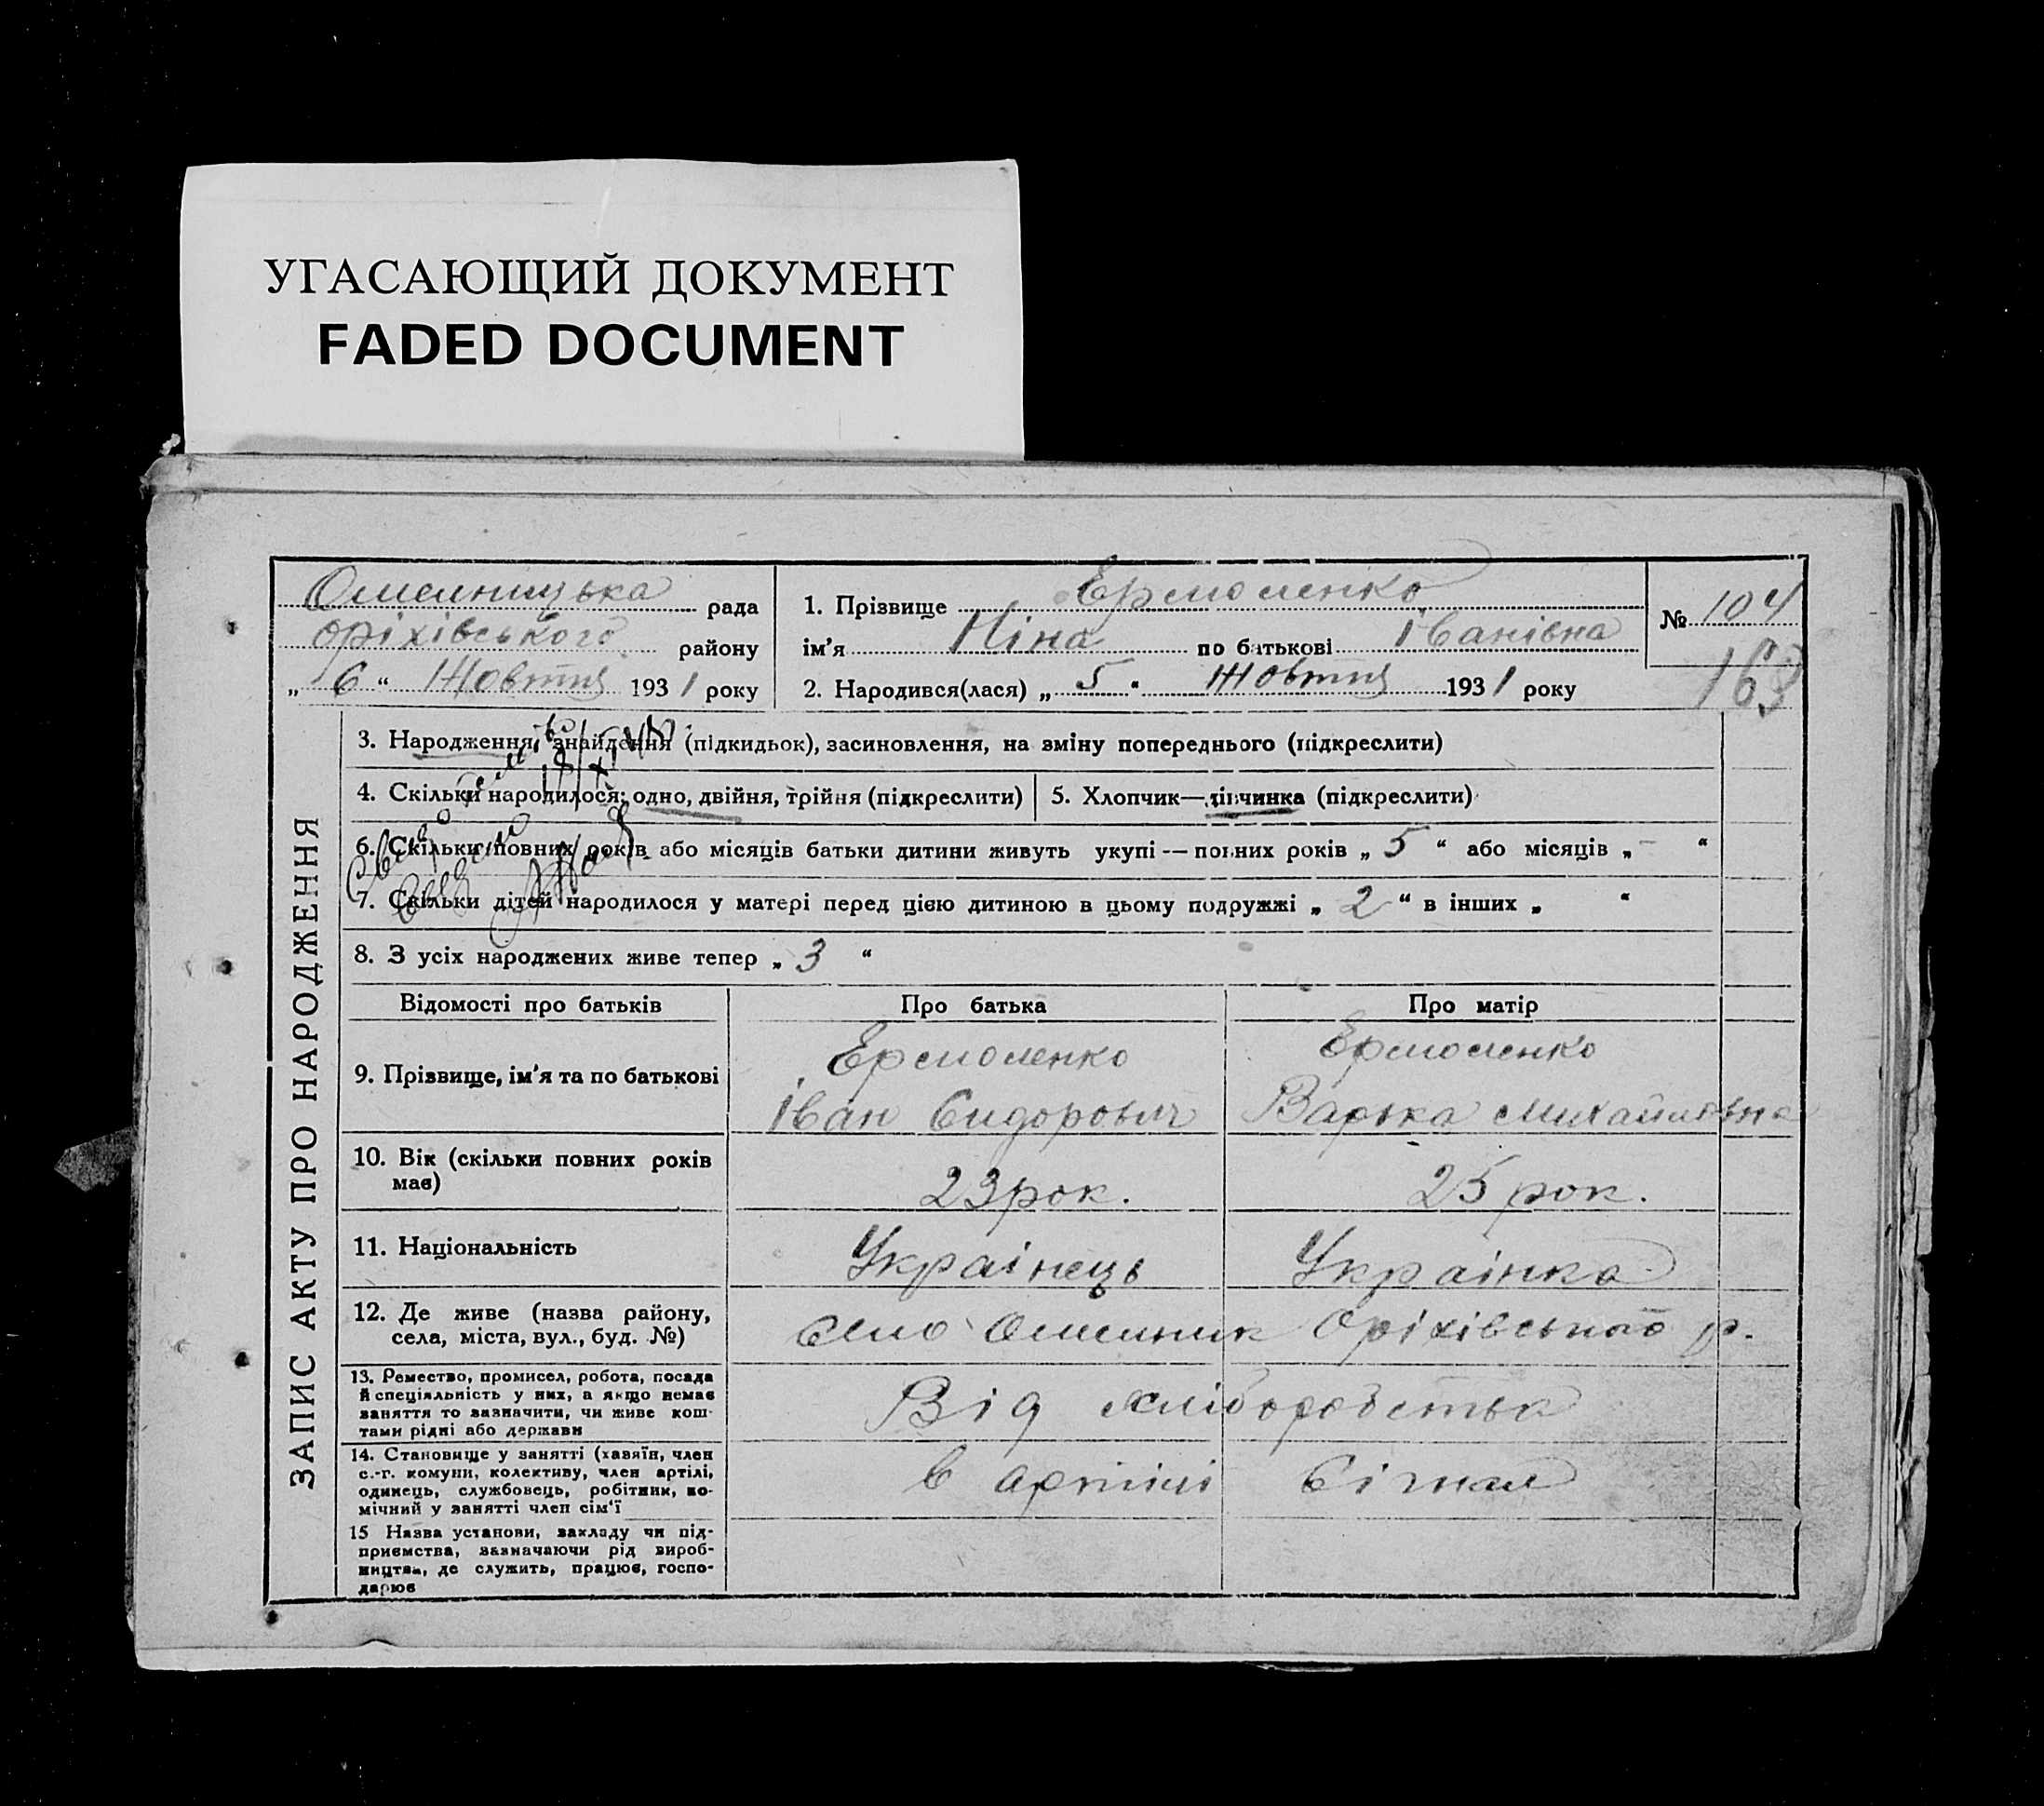 УГАСАЮЩИЙ ДОКУМЕНТ
FADED DOCUMENT
Омелницька рада
Оріхівського району
„ 6 “ Жовтня 1931 року
1. Прізвище Ермоленко
ім'я Ніна по батькові Іванівна
2. Народився(лася) „ 5 “ Жовтня 1931 року
№ 104
163
ЗАПИС АКТУ ПРО НАРОДЖЕННЯ
3. Народження, знайдення (підкидьок), засиновлення, на зміну попереднього (підкреслити)
4. Скільки народилося: одно, двійня, трійня (підкреслити)
5. Хлопчик—дівчинка (підкреслити)
6. Скільки повних років або місяців батьки дитини живуть укупі — повних років „ 5 “ або місяців „ – “
7. Скільки дітей народилося у матері перед цією дитиною в цьому подружжі „ 2 “ в інших „ “
8. З усіх народжених живе тепер „ 3 “
Відомості про батьків
Про батька
Про матір
9. Прізвище, ім'я та по батькові
Ермоленко
Іван Сидорович
Ермоленко
Варька Михайлівна
10. Вік (скільки повних років
має)
23 рок.
25 рок.
11. Національність
Украінець
Украінка
12. Де живе (назва району,
села, міста, вул., буд. №)
село Омелник Оріхівського р.
13. Ремество, промисел, робота, посада
й спеціяльність у них, а якщо немає
заняття то зазначити, чи живе кош-
тами рідні або держави
Від хліборобства
14. Становище у занятті (хазяїн, член
с.-г. комуни, колективу, член артілі,
одинець, службовець, робітник, по-
мічний у занятті член сім'ї
в артілі
15 Назва установи, закладу чи під-
приємства, зазначаючи рід вироб-
ництва, де служить, працює, госпо-
дарює